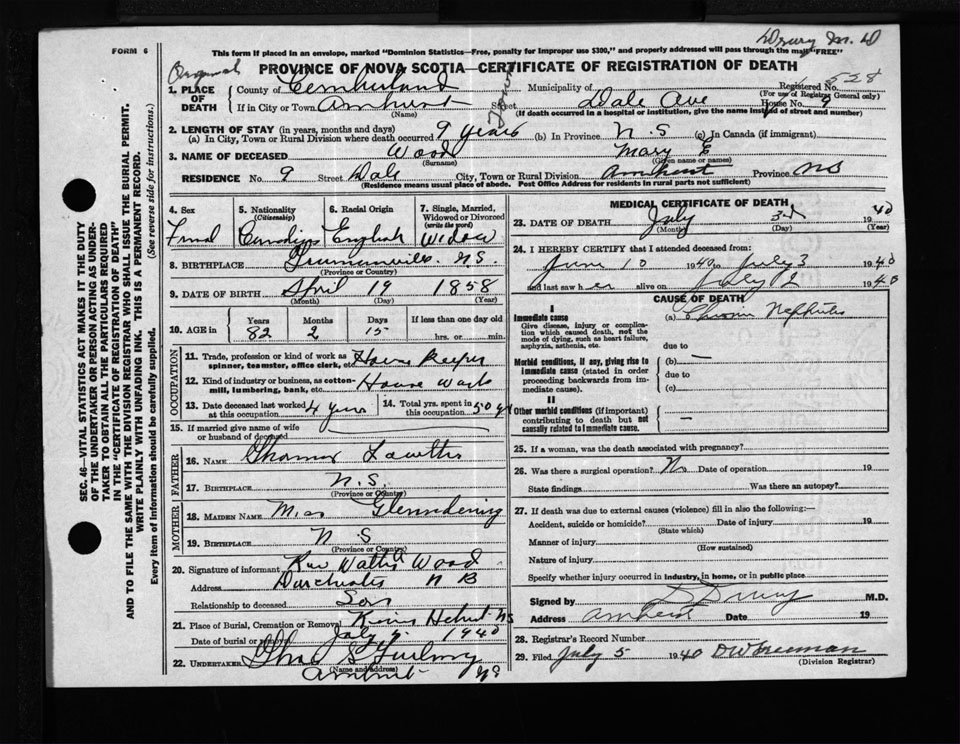 Drury M. D
FORM 6
This form if placed in an envelope, marked "Dominion Statistics—Free, penalty for improper use $300," and properly addressed will pass through the mail "FREE"
Original
PROVINCE OF NOVA SCOTIA—CERTIFICATE OF REGISTRATION OF DEATH
1. PLACE OF DEATH
County of Cumberland Municipality of Registered No. 528
(For use of Registrar General only)
If in City or Town Amherst Street Dale Ave House No. 9
(Name) (If death occurred in a hospital or institution, give the name instead of street and number)
2. LENGTH OF STAY (in years, months and days)
(a) In City, Town or Rural Division where death occurred 9 years (b) In Province N. S (c) In Canada (if immigrant)
3. NAME OF DECEASED Wood Mary E
(Surname) (Given name or names)
RESIDENCE No. 9 Street Dale City, Town or Rural Division Amherst Province NS
(Residence means usual place of abode. Post Office Address for residents in rural parts not sufficient)
4. Sex
5. Nationality (Citizenship)
6. Racial Origin
7. Single, Married, Widowed or Divorced (write the word)
Canadian English Widow
8. BIRTHPLACE N.S.
(Province or Country)
9. DATE OF BIRTH April 19 1858
(Month) (Day) (Year)
10. AGE in Years Months Days If less than one day old
82 2 15 hrs. or min.
OCCUPATION
11. Trade, profession or kind of work as spinner, teamster, office clerk, etc. House Keeper
12. Kind of industry or business, as cotton-mill, lumbering, bank, etc. House Work
13. Date deceased last worked at this occupation 4 years
14. Total yrs. spent in this occupation 50 yrs
15. If married give name of wife or husband of deceased
FATHER
16. NAME Thomas Lowther
17. BIRTHPLACE N.S.
(Province or Country)
MOTHER
18. MAIDEN NAME Miss Glenndening
19. BIRTHPLACE N S
(Province or Country)
20. Signature of informant Rev Wood
Address Dorchester N B
Relationship to deceased Son
21. Place of Burial, Cremation or Removal NS
Date of burial or removal July 1940
22. UNDERTAKER
(Name and address)
Amherst NS
MEDICAL CERTIFICATE OF DEATH
23. DATE OF DEATH July 3d 1940
(Month) (Day) (Year)
24. I HEREBY CERTIFY that I attended deceased from:
June 10 1940 to July 3 1940
and last saw her alive on July 2 1940
CAUSE OF DEATH
I
Immediate cause (a) Chronic Nephritis
Give disease, injury or complication which caused death, not the mode of dying, such as heart failure, asphyxia, asthenia, etc.
due to
Morbid conditions, if any, giving rise to immediate cause (stated in order proceeding backwards from immediate cause).
(b) —
due to
(c)
II
Other morbid conditions (if important) contributing to death but not causally related to immediate cause. —
25. If a woman, was the death associated with pregnancy?
26. Was there a surgical operation? No Date of operation 19
State findings Was there an autopsy?
27. If death was due to external causes (violence) fill in also the following:—
Accident, suicide or homicide? Date of injury 19
(State which)
Manner of injury
(How sustained)
Nature of injury
Specify whether injury occurred in industry, in home, or in public place
Signed by Drury M.D.
Address Amherst Date 19
28. Registrar's Record Number
29. Filed July 5 1940 DW Freeman
(Division Registrar)
SEC. 46—VITAL STATISTICS ACT MAKES IT THE DUTY
OF THE UNDERTAKER OR PERSON ACTING AS UNDER-
TAKER TO OBTAIN ALL THE PARTICULARS REQUIRED
IN THE "CERTIFICATE OF REGISTRATION OF DEATH"
AND TO FILE THE SAME WITH THE DIVISION REGISTRAR WHO SHALL ISSUE THE BURIAL PERMIT.
WRITE PLAINLY WITH UNFADING INK. THIS IS A PERMANENT RECORD.
Every item of information should be carefully supplied. (See reverse side for instructions.)